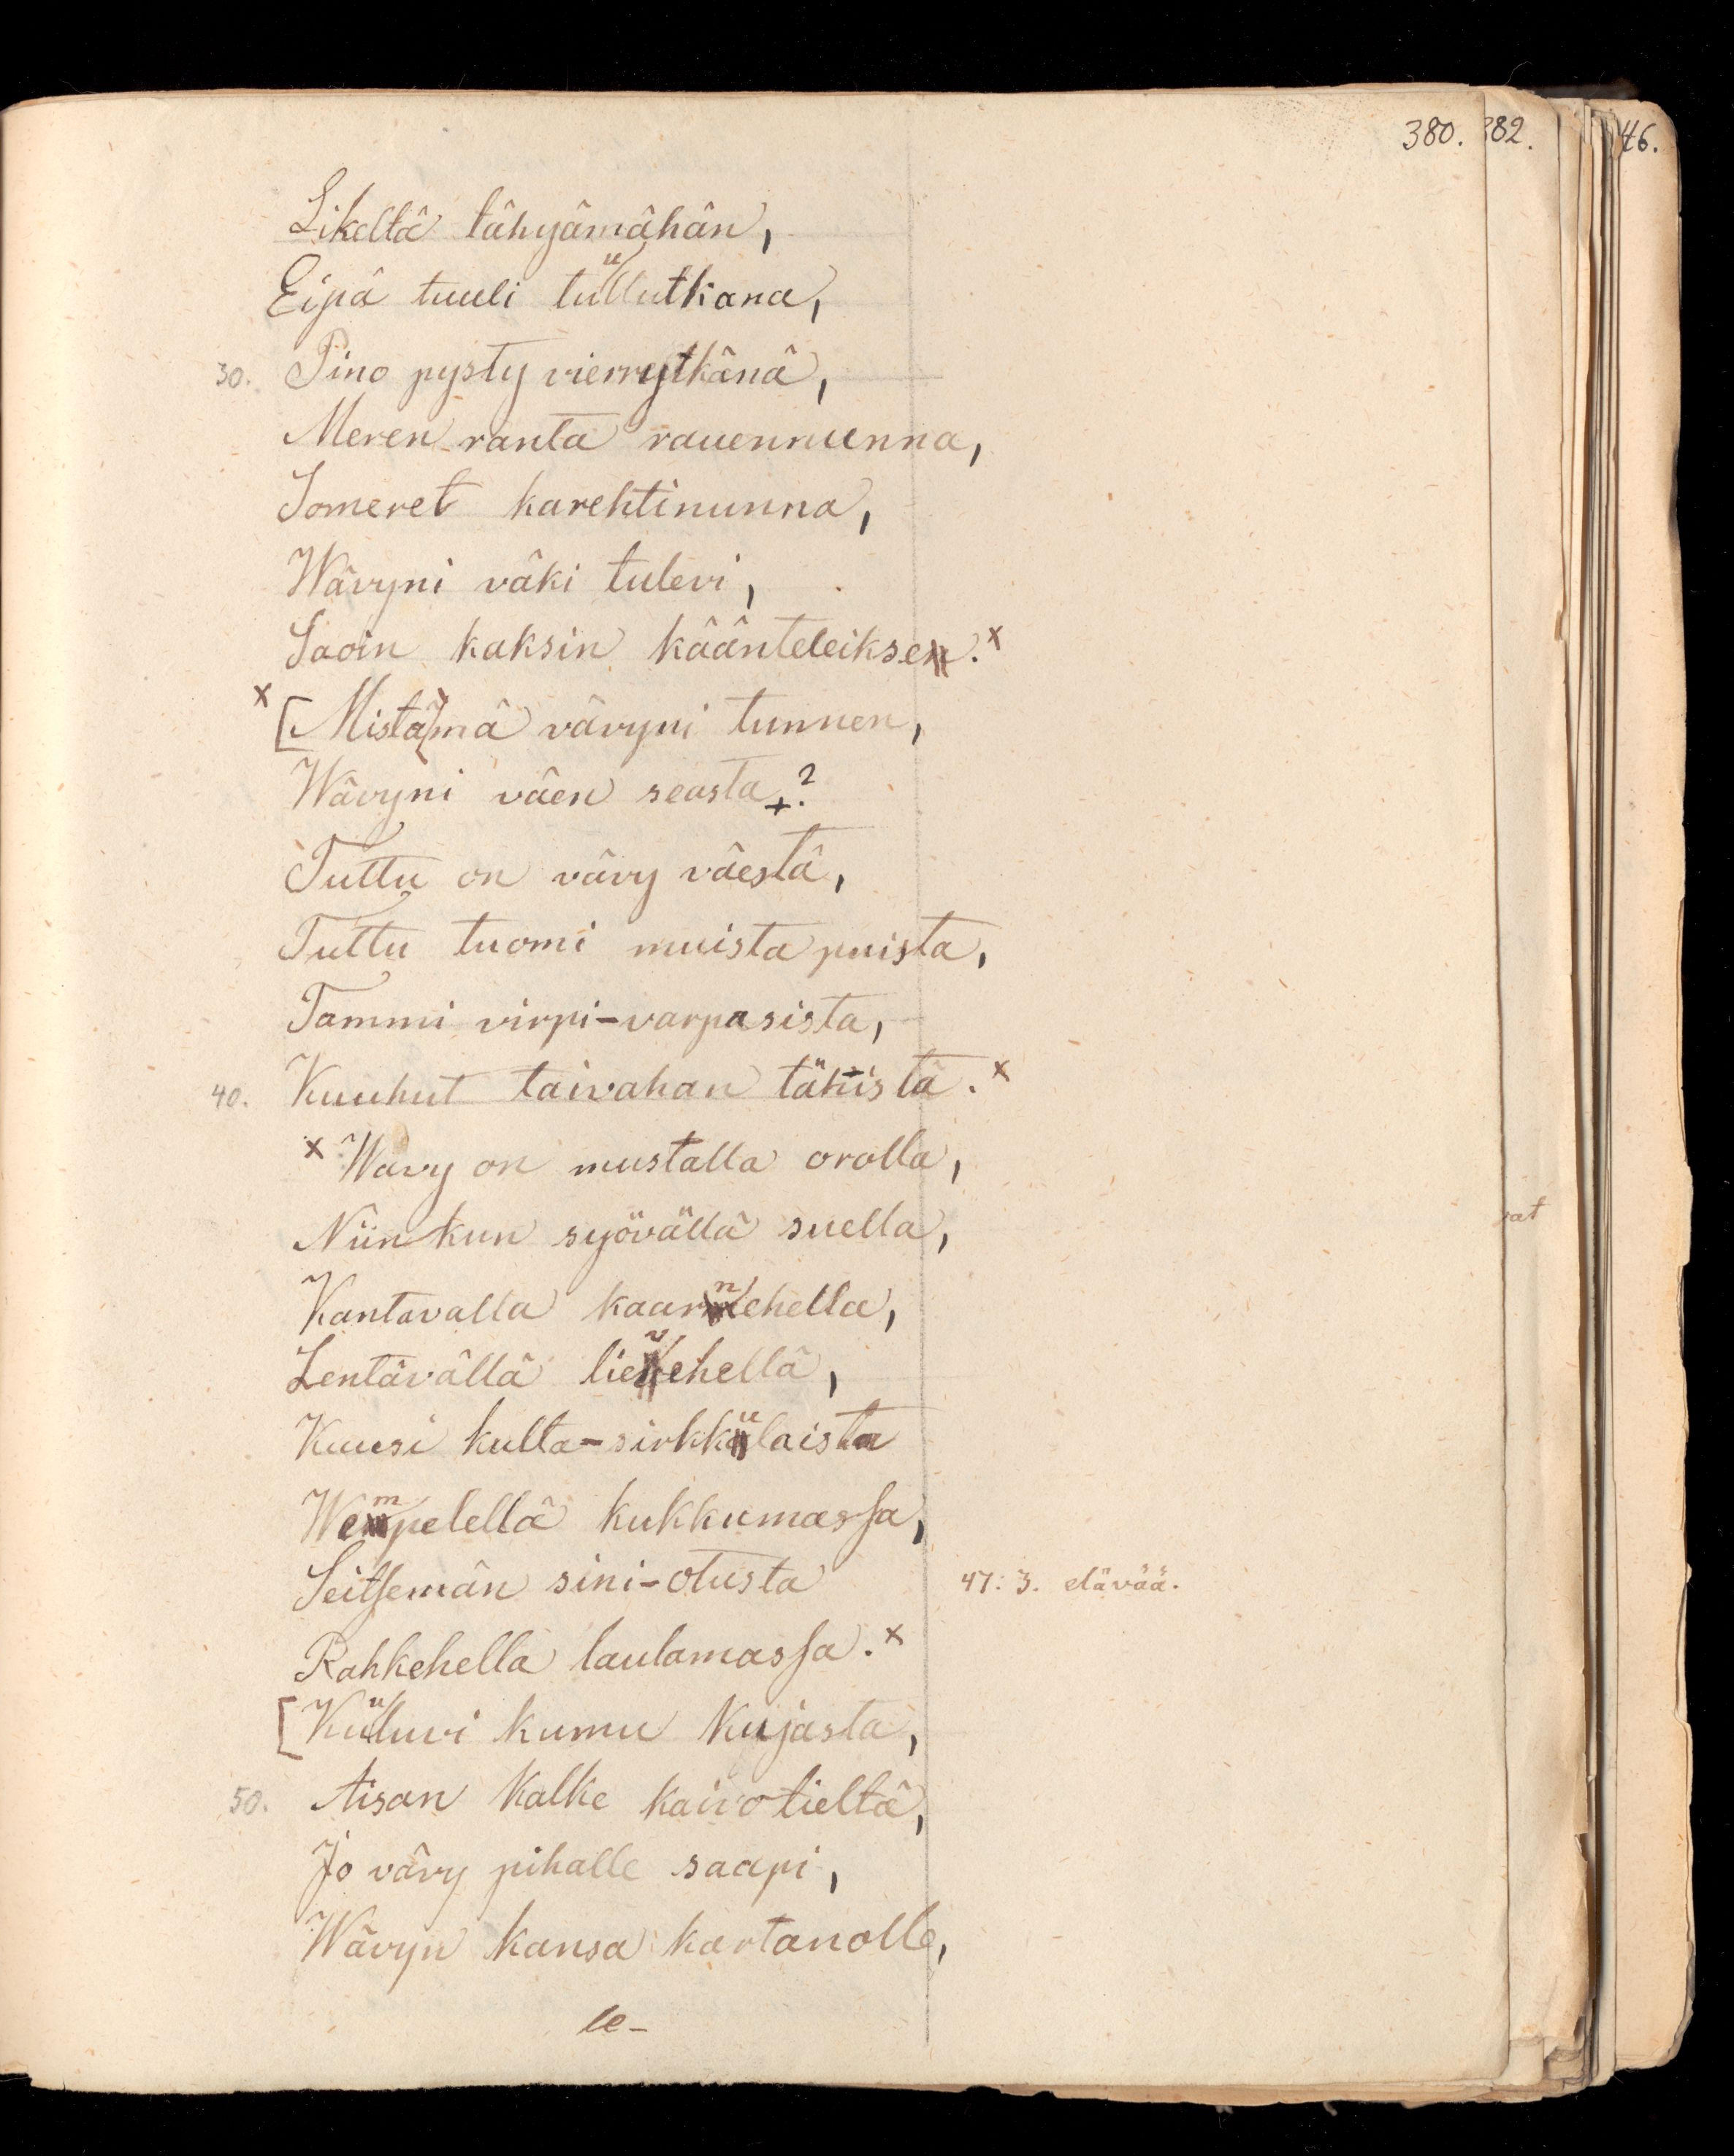 380. 382. 46.
Likeltä tähyämähän,
Eipä tuuli tullutkana,
30. Pino pysty vierrytkänä,
Meren ranta rauennunna,
Someret karehtinunna,
Wävyni väki tulevi,
Saoin kaksin käänteleiksen. x
x [Mistä mä vävyni tunnen,
Wävyni väen seasta +?
Tuttu on vävy väestä,
Tuttu tuomi muista puista,
Tammi virpi-varpasista,
40. Kuuhut taivahan tähistä. x
x Wävy on mustalla orolla,
Niin kun syövällä suella,
Kantavalla kaarnehella,
Lentävällä lievehellä,
Kuusi kulta-sirkkulaista
Wempelellä kukkumassa,
Seitsemän sini-otusta 47: 3. elävää.
Rahkehella laulamassa. x
[Kuuluvi kumu kujasta,
50. Aisan kalke kaivotieltä,
Jo vävy pihalle saapi,
Wävyn kansa kartanolle,
le-